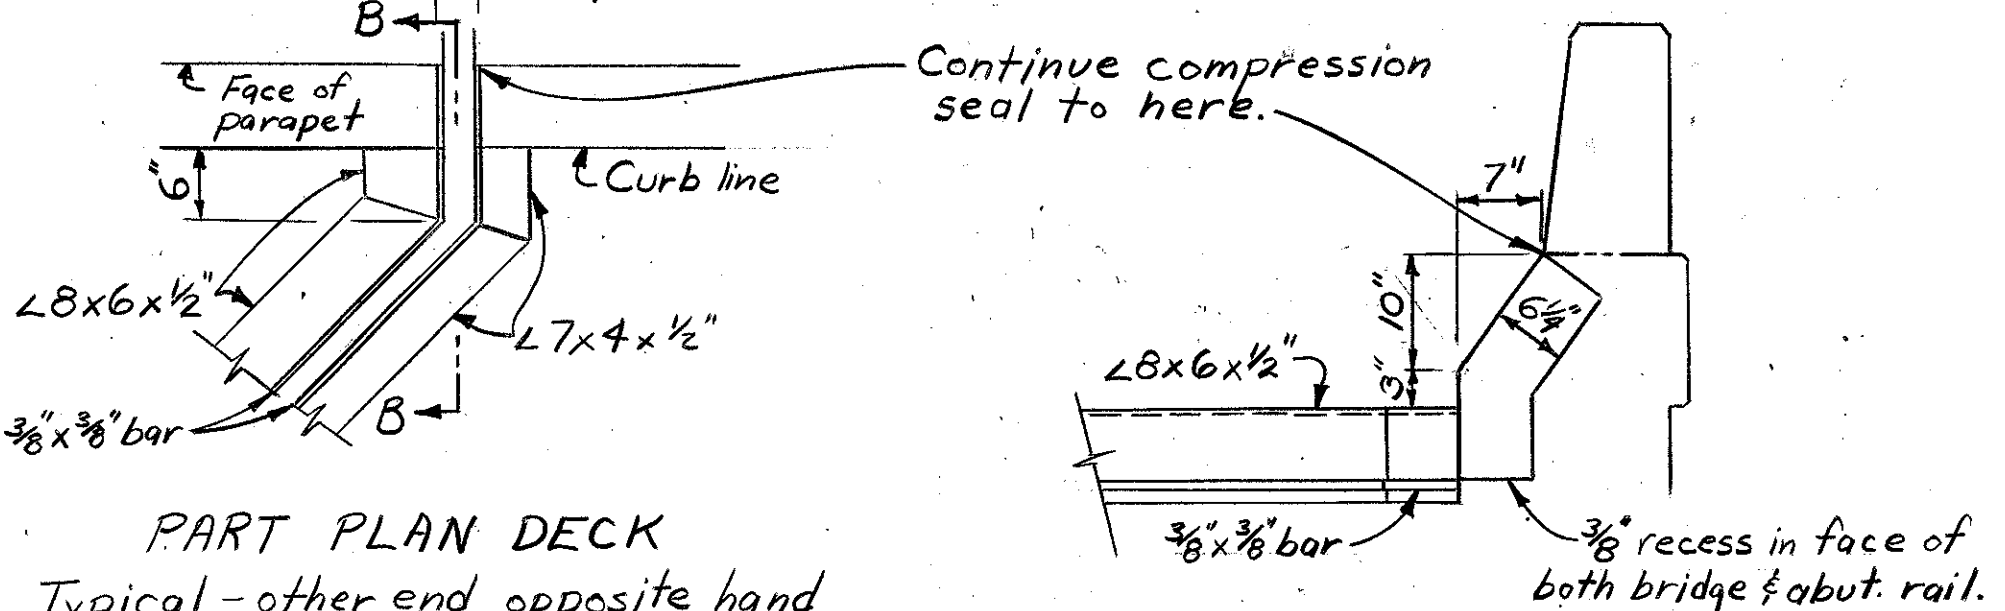 B
Face of
parapet
6"
Curb line
∠8x6x½"
∠7x4x½"
B
⅜"x⅜"bar
PART PLAN DECK
Typical - other end opposite hand
Continue compression
seal to here.
7"
10"
6¼"
3"
∠8x6x½"
⅜"x⅜"bar
⅜" recess in face of
both bridge & abut. rail.